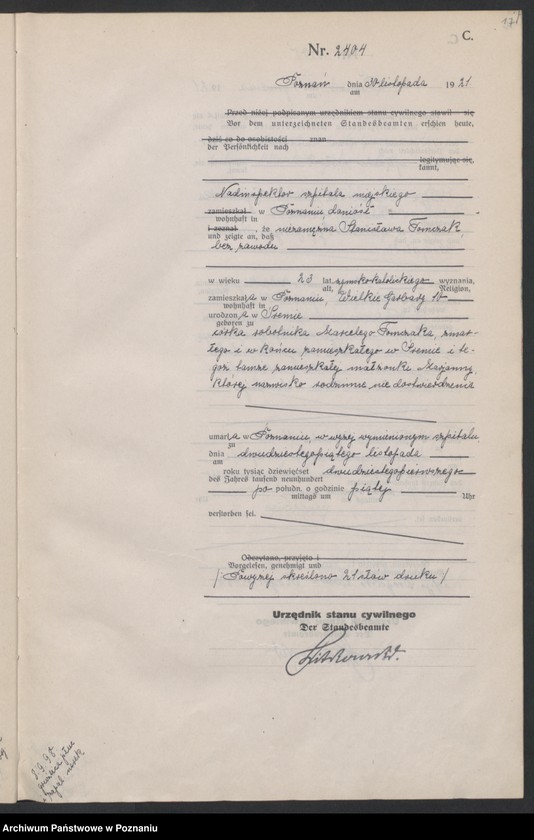 171
C.
Nr. 2404
Poznań dnia 30 listopada 1921
am
Przed niżej podpisanym urzędnikiem stanu cywilnego stawił się
Vor dem unterzeichneten Standesbeamten erschien heute,
dziś co do osobistości znan
der Persönlichkeit nach
legitymując się,
kannt,
Nadinspektor szpitala miejskiego
zamieszkał w Poznaniu doniósł
wohnhaft in
i zeznał, że niezamężna Stanisława Tomczak,
und zeigte an, daß
bez zawodu
w wieku 23 lat, rzymskokatolickiego wyznania,
alt, Religion,
zamieszkała w Poznaniu, Wielkie Garbary
wohnhaft in
urodzona w Śremie
geboren zu
córka robotnika Marcelego Tomczaka, zmar-
łego i w końcu zamieszkałego w Śremie i te-
goż tamże zamieszkałej małżonki Marjanny,
której nazwisko rodzinne nie do stwierdzenia
umarła w Poznaniu, w wyżej wymienionym szpitalu
zu
dnia dwudziestegopiątego listopada
am
roku tysiąc dziewięćset dwudziestegopierwszego
des Jahres tausend neunhundert
po połudn. o godzinie piątej
mittags um Uhr
verstorben sei.
Odczytano, przyjęto i
Vorgelesen, genehmigt und
/: Powyżej skreślono 21 słów druku /
Urzędnik stanu cywilnego
Der Standesbeamte
Archiwum Państwowe w Poznaniu